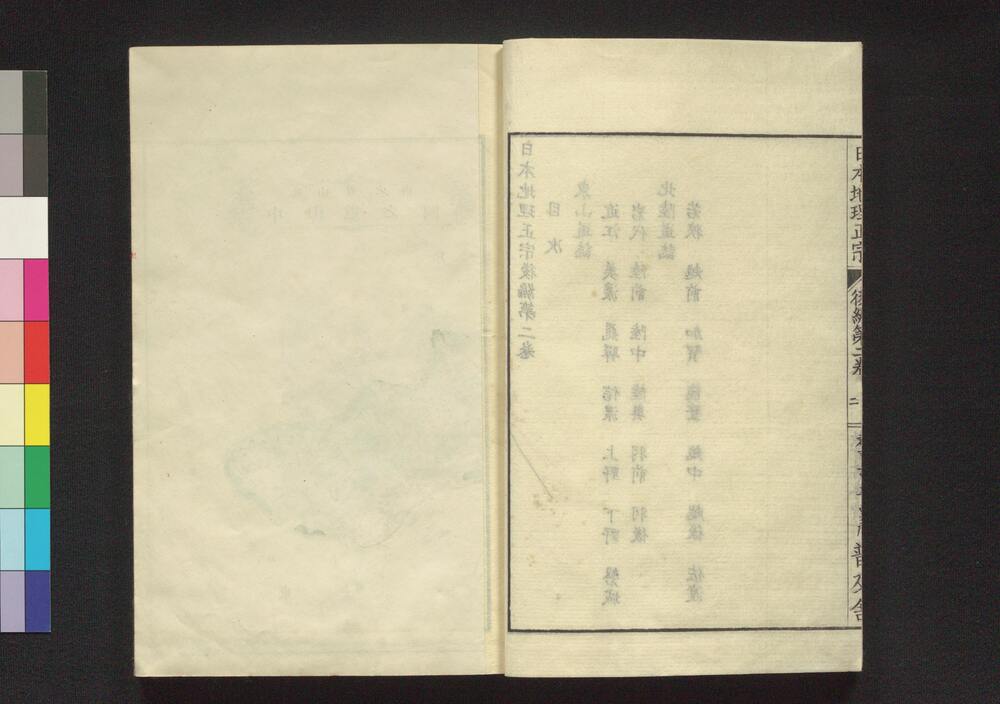 日本地理正宗 後編第二卷 二
普及舍
日本地理正宗後編第二卷
目次
東山道誌
近江 美濃 飛驒 信濃 上野 下野 磐城
岩代 陸前 陸中 陸奥 羽前 羽後
北陸道誌
若狹 越前 加賀 能登 越中 越後 佐渡